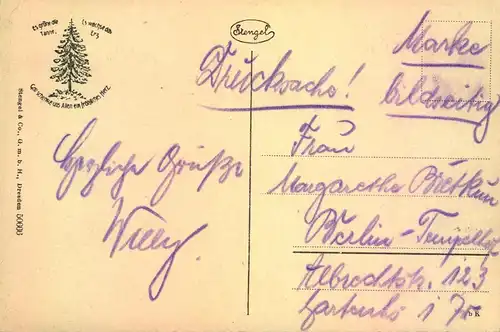 Es grüne die Tanne,
Es wachse das Erz,
Gott schenke uns Allen ein fröhliches Herz.
Stengel
Stengel & Co., G. m. b. H., Dresden 50693
Drucksache!
Marke
bildseitig
Herzliche Grüße
Willy.
Frau
Margarethe
Berlin-Tempelhof
Albrechtstr. 123